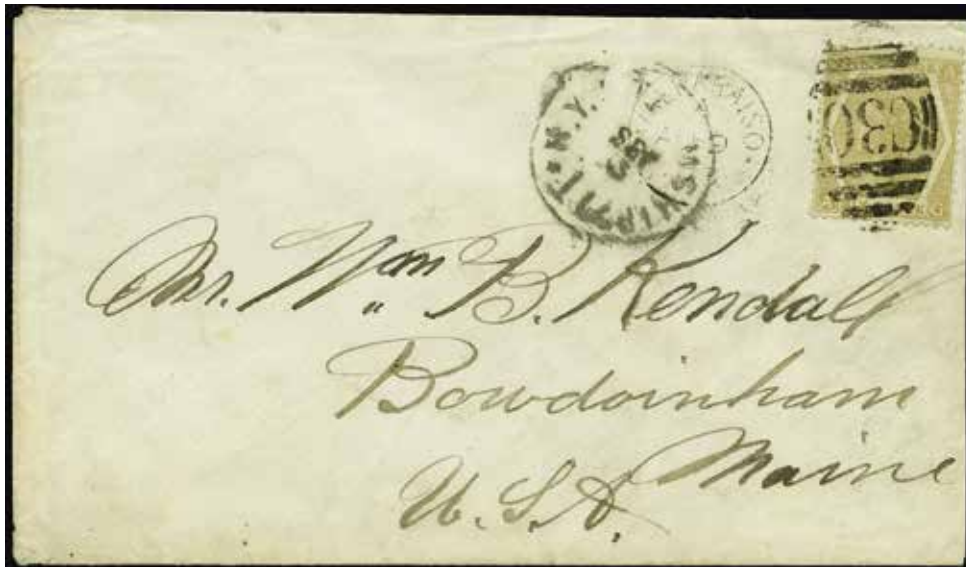 N.Y. STEAMSHIP
RAISO.
C30
G
Mr. Wm B. Kendall
Bowdoinham
Maine
U.S.A.